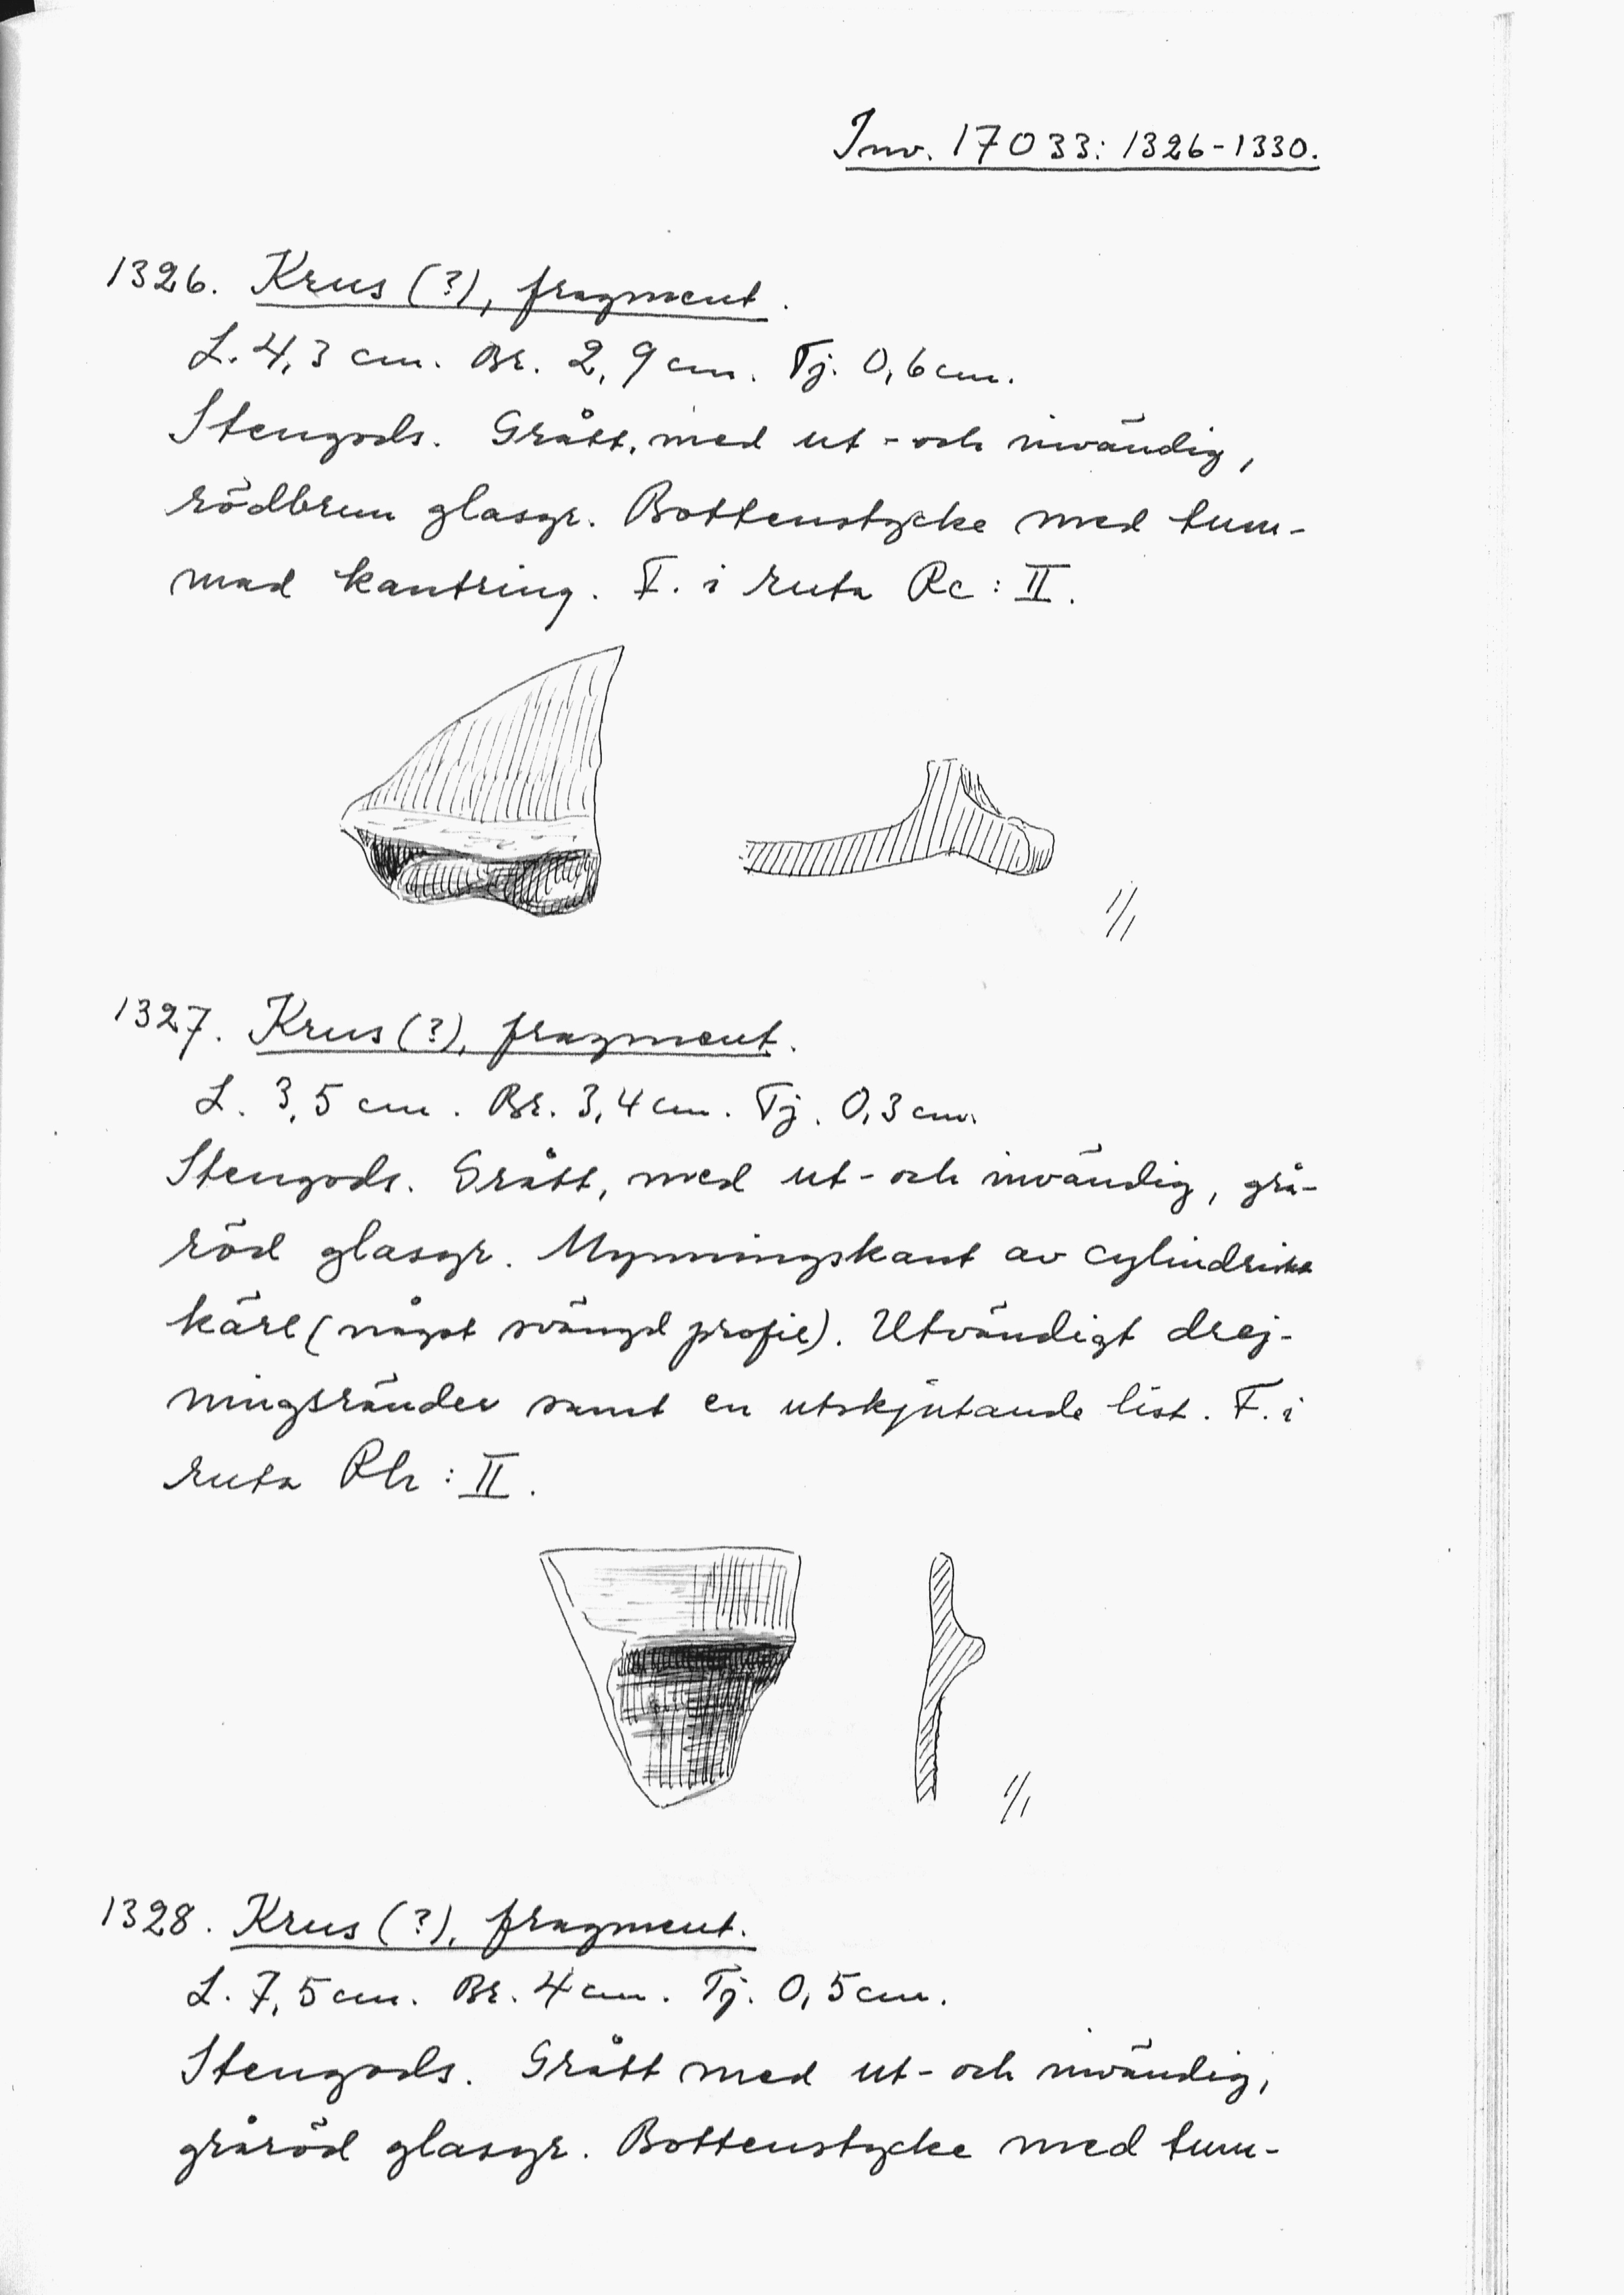 Inv. 17033: 1326-1330.
1326. Krus (?), fragment.
L. 4,3 cm. Br. 2,9 cm. Tj. 0,6 cm.
Stengods. Grått, med ut- och invändig,
rödbrun glasyr. Bottenstycke med tum-
mad kantring. F. i ruta Rc: II.
1/1
1327. Krus (?), fragment.
L. 3,5 cm. Br. 3,4 cm. Tj. 0,3 cm.
Stengods. Grått, med ut- och invändig, grå-
röd glasyr. Mynningskant av cylindriskt
kärl (något svängd profil). Utvändigt drej-
ningsränder samt en utskjutande list. F. i
ruta Rb: II.
1/1
1328. Krus (?), fragment.
L. 7,5 cm. Br. 4 cm. Tj. 0,5 cm.
Stengods. Grått med ut- och invändig,
gråröd glasyr. Bottenstycke med tum-